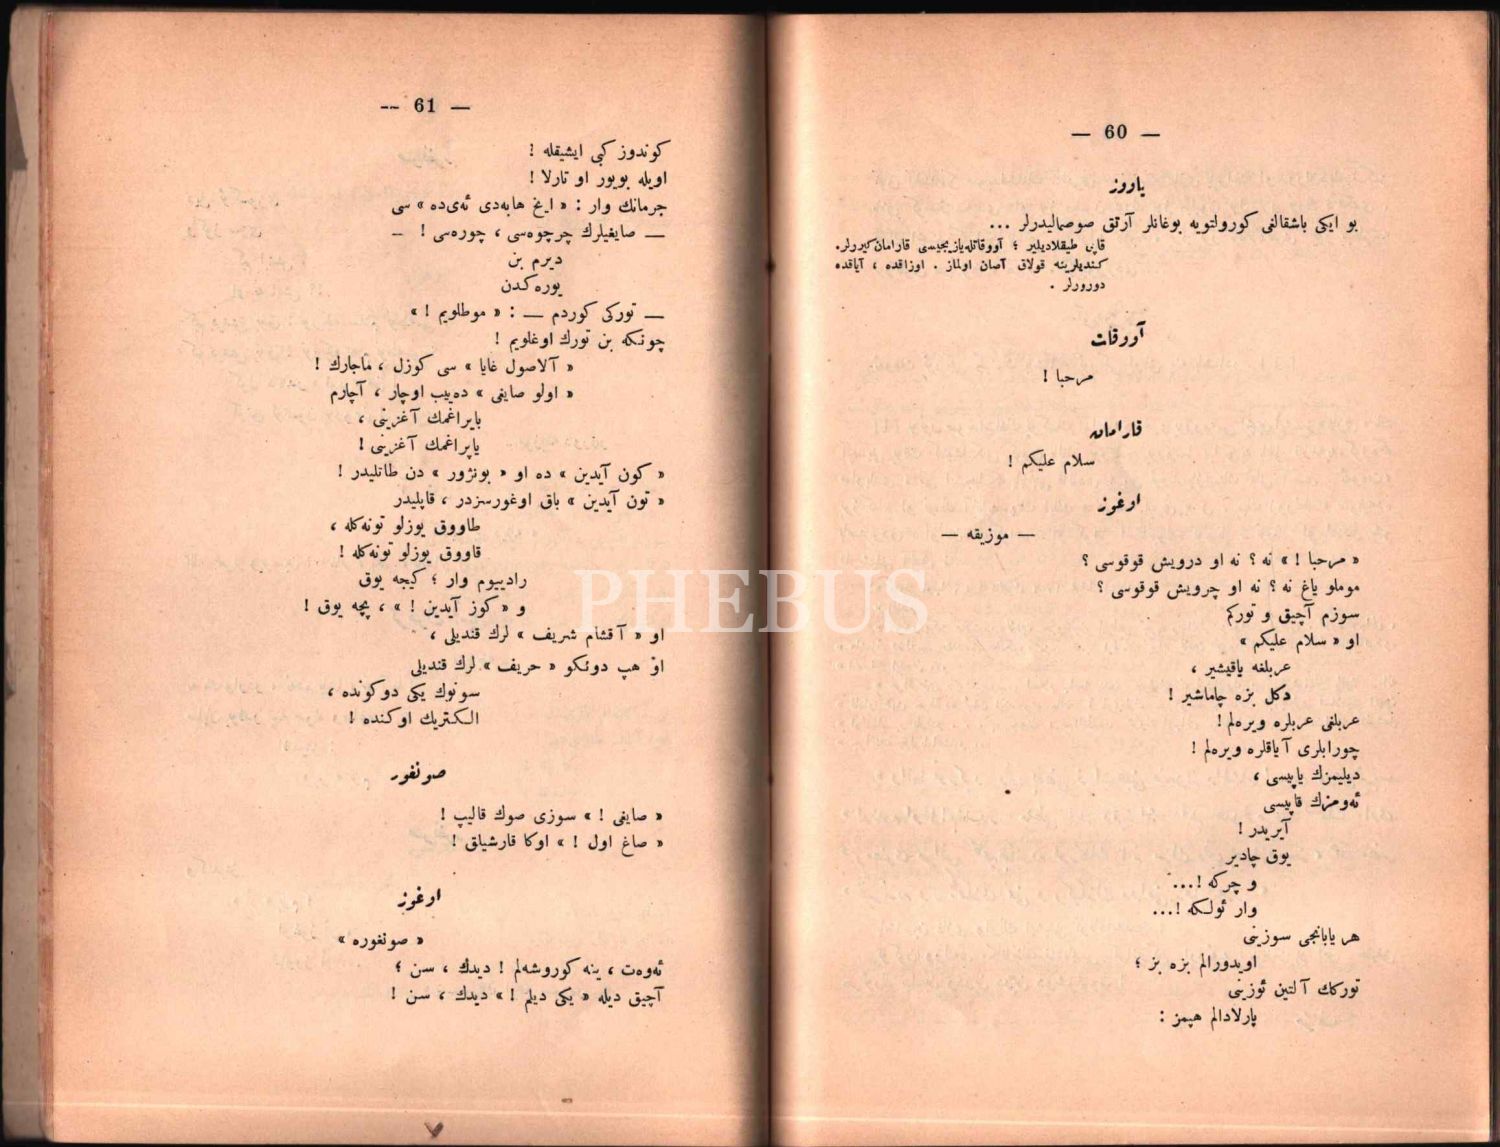 — 60 —
ياووز
بو ايكى باشقالغى كورولتويه بوغانلر آرتق صوصماليدرلر ...
قاپى طيقلاديلير ؛ آووقاتله يازيجيسى قارامان كيررلر.
كنديلرينه قولاق آصان اولماز . اوزاقده ، آياقده
دورورلر .
آووقات
مرحبا !
قارامان
سلام عليكم !
اوغوز
— موزيقه —
« مرحبا ! » نه ؟ نه او درويش قوقوسى ؟
موملو ياغ نه ؟ نه او چرويش قوقوسى ؟
سوزم آچيق و توركم
او « سلام عليكم »
عربلغه ياقيشير ،
دكل بزه چاماشير !
عربلغى عربلره ويره‌لم !
چورابلرى آياقلره ويره‌لم !
ديليمزك ياپيسى ،
ئه‌ومزك قاپيسى
آيريدر !
يوق چادير
و چركه !...
وار ئولكه !...
هر يابانجى سوزينى
اويدورالم بزه بز ؛
توركك آلتين ئوزينى
پارلادالم هپمز :
— 61 —
كوندوز كبى ايشيقله !
اويله بويور او تارلا !
جرمانك وار : « ايخ هابه‌دى ئه‌ى‌ده » سى
— صايغيلرك چرچوه‌سى ، چوره‌سى ! —
ديرم بن
يوره‌كدن
— توركى كوردم — : « موطلويم ! »
چونكه بن تورك اوغلويم !
« آلاصول غايا » سى كوزل ، ماجارك !
« اولو صايغى » ده‌ييب اوچار ، آچارم
بايراغمك آغزينى ،
ياپراغمك آغزينى !
« كون آيدين » ده او « بونژور » دن طاتليدر !
« تون آيدين » باق اوغورسزدر ، قاپليدر
طاووق يوزلو تونه‌كله ،
قاووق يوزلو تونه‌كله !
رادييوم وار ؛ كيجه يوق
و « كوز آيدين ! » ، پچه يوق !
او « آقشام شريف » لرك قنديلى ،
او هپ دونكو « حريف » لرك قنديلى
سونوك يكى دوكونده ،
الكتريك اوكنده !
صونغور
« صايغى ! » سوزى صوك قاليپ !
« صاغ اول ! » اوكا قارشيلق !
اوغوز
« صونغوره »
ئه‌وه‌ت ، ينه كوروشه‌لم ! ديدك ، سن ؛
آچيق ديله « يكى ديلم ! » ديدك ، سن !
PHEBUS